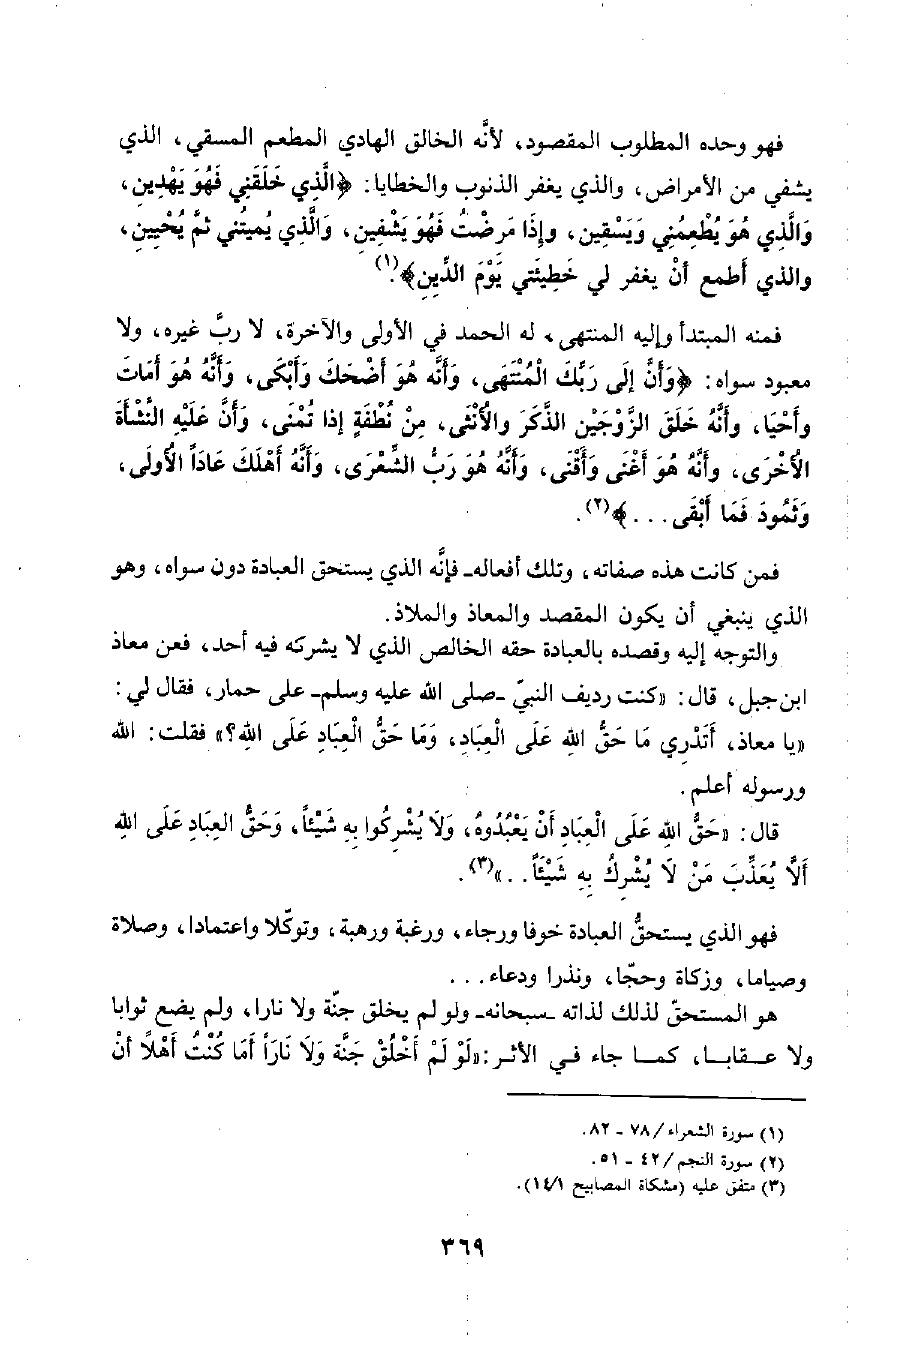 فهو وحده المطلوب المقصود، لأنَّه الخالق الهادي المطعم المسقي، الذي
يشفي من الأمراض، والذي يغفر الذنوب والخطايا: ﴿الَّذِي خَلَقَنِي فَهُوَ يَهْدِينِ،
وَالَّذِي هُوَ يُطْعِمُنِي وَيَسْقِينِ، وإِذَا مَرِضْتُ فَهُوَ يَشْفِينِ، وَالَّذِي يُمِيتُنِي ثمَّ يُحْيِينِ،
والذي أَطمع أَنْ يغفر لي خَطِيئَتِي يَوْمَ الدِّينِ﴾.(١)
فمنه المبتدأ وإليه المنتهى، له الحمد في الأولى والآخرة، لا ربَّ غيره، ولا
معبود سواه: ﴿وَأَنَّ إِلَى رَبِّكَ الْمُنْتَهَى، وَأَنَّه هُوَ أَضْحَكَ وَأَبْكَى، وَأَنَّهُ هُوَ أَمَاتَ
وأَحْيَا، وأَنَّهُ خَلَقَ الزَّوْجَيْنِ الذَّكَرَ والأُنْثَى، مِنْ نُطْفَةٍ إِذا تُمْنَى، وَأَنَّ عَلَيْهِ النَّشْأَةَ
الأُخْرَى، وأَنَّهُ هُوَ أَغْنَى وَأَقْنَى، وَأَنَّهُ هُوَ رَبُّ الشِّعْرَى، وَأَنَّهُ أَهْلَكَ عَاداً الأُولَى،
وَثَمُودَ فَمَا أَبْقَى...﴾(٢).
فمن كانت هذه صفاته، وتلك أفعاله_ فإنَّه الذي يستحق العبادة دون سواه، وهو
الذي ينبغي أن يكون المقصد والمعاذ والملاذ.
والتوجه إليه وقصده بالعبادة حقه الخالص الذي لا يشركه فيه أحد، فعن معاذ
ابن جبل، قال: «كنت رديف النبيّ _صلى الله عليه وسلم_ على حمار، فقال لي:
«يا معاذ، أَتَدْرِي مَا حَقُّ اللهِ عَلَى الْعِبَادِ، وَمَا حَقُّ الْعِبَادِ عَلَى اللهِ؟» فقلت: الله
ورسوله أعلم.
قال: «حَقُّ اللهِ عَلَى الْعِبَادِ أَنْ يَعْبُدُوهُ، وَلَا يُشْرِكُوا بِهِ شَيْئاً، وَحَقُّ العِبَادِ عَلَى اللهِ
أَلَّا يُعَذِّبَ مَنْ لَا يُشْرِكُ بِهِ شَيْئاً..»(٣).
فهو الذي يستحقُّ العبادة خوفا ورجاء، ورغبة ورهبة، وتوكّلا واعتمادا، وصلاة
وصياما، وزكاة وحجّا، ونذرا ودعاء...
هو المستحقّ لذلك لذاته _سبحانه_ ولو لم يخلق جنّة ولا نارا، ولم يضع ثوابا
ولا عقابا، كما جاء في الأثر: «لَوْ لَمْ أَخْلُقْ جَنَّة وَلَا نَاراً أَمَا كُنْتُ أَهْلاً أَنْ
(١) سورة الشعراء/ ٧٨ _ ٨٢.
(٢) سورة النجم/ ٤٢ _ ٥١.
(٣) متفق عليه (مشكاة المصابيح ١٤/١).
٣٦٩